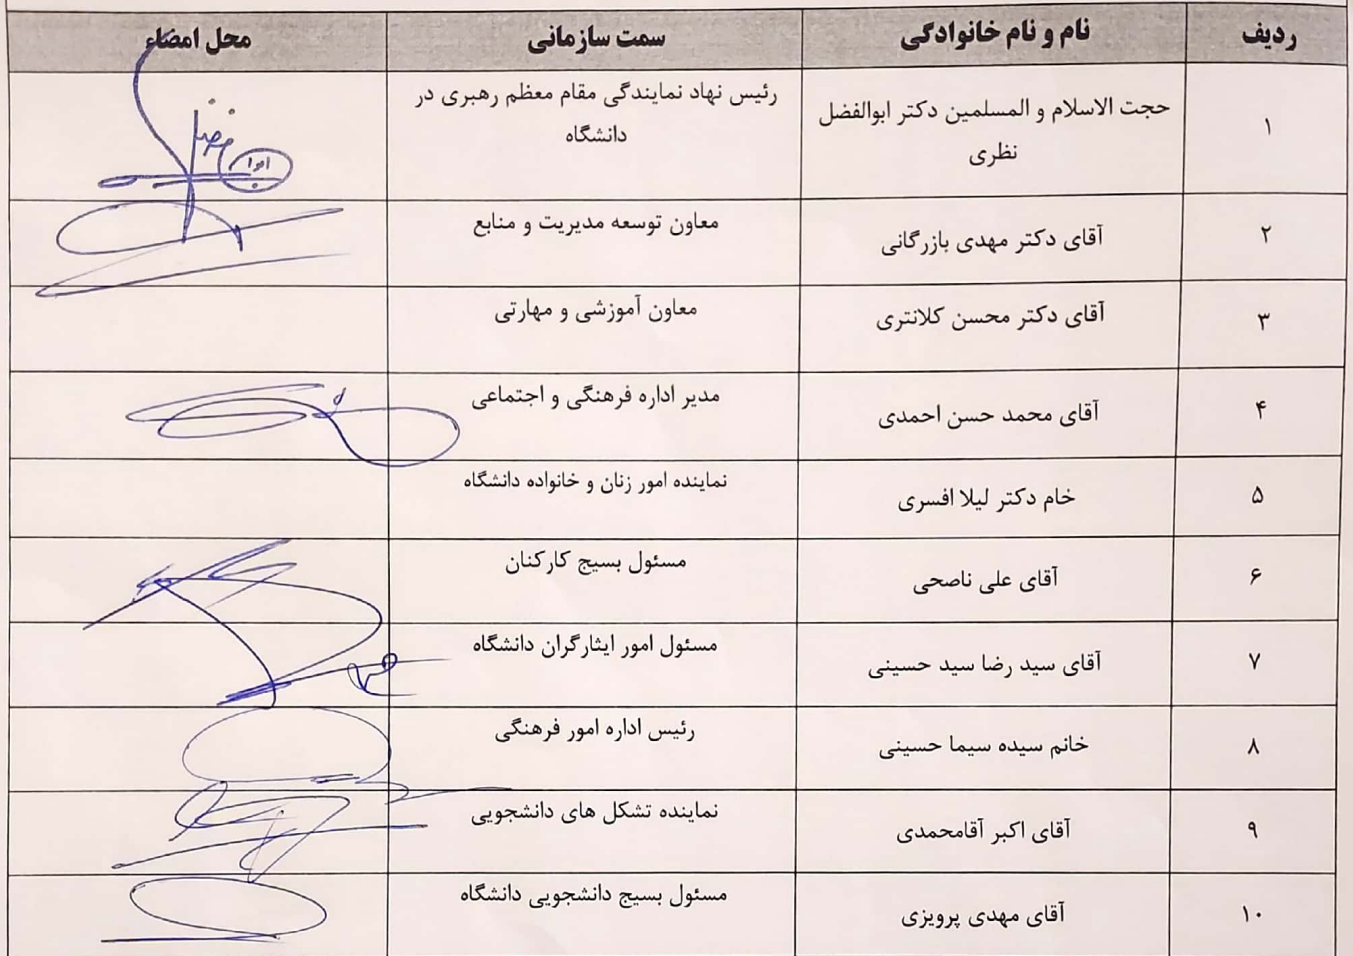 ردیف نام و نام خانوادگی سمت سازمانی محل امضاء
۱ حجت الاسلام و المسلمین دکتر ابوالفضل نظری رئیس نهاد نمایندگی مقام معظم رهبری در دانشگاه
۲ آقای دکتر مهدی بازرگانی معاون توسعه مدیریت و منابع
۳ آقای دکتر محسن کلانتری معاون آموزشی و مهارتی
۴ آقای محمد حسن احمدی مدیر اداره فرهنگی و اجتماعی
۵ خام دکتر لیلا افسری نماینده امور زنان و خانواده دانشگاه
۶ آقای علی ناصحی مسئول بسیج کارکنان
۷ آقای سید رضا سید حسینی مسئول امور ایثارگران دانشگاه
۸ خانم سیده سیما حسینی رئیس اداره امور فرهنگی
۹ آقای اکبر آقامحمدی نماینده تشکل های دانشجویی
۱۰ آقای مهدی پرویزی مسئول بسیج دانشجویی دانشگاه